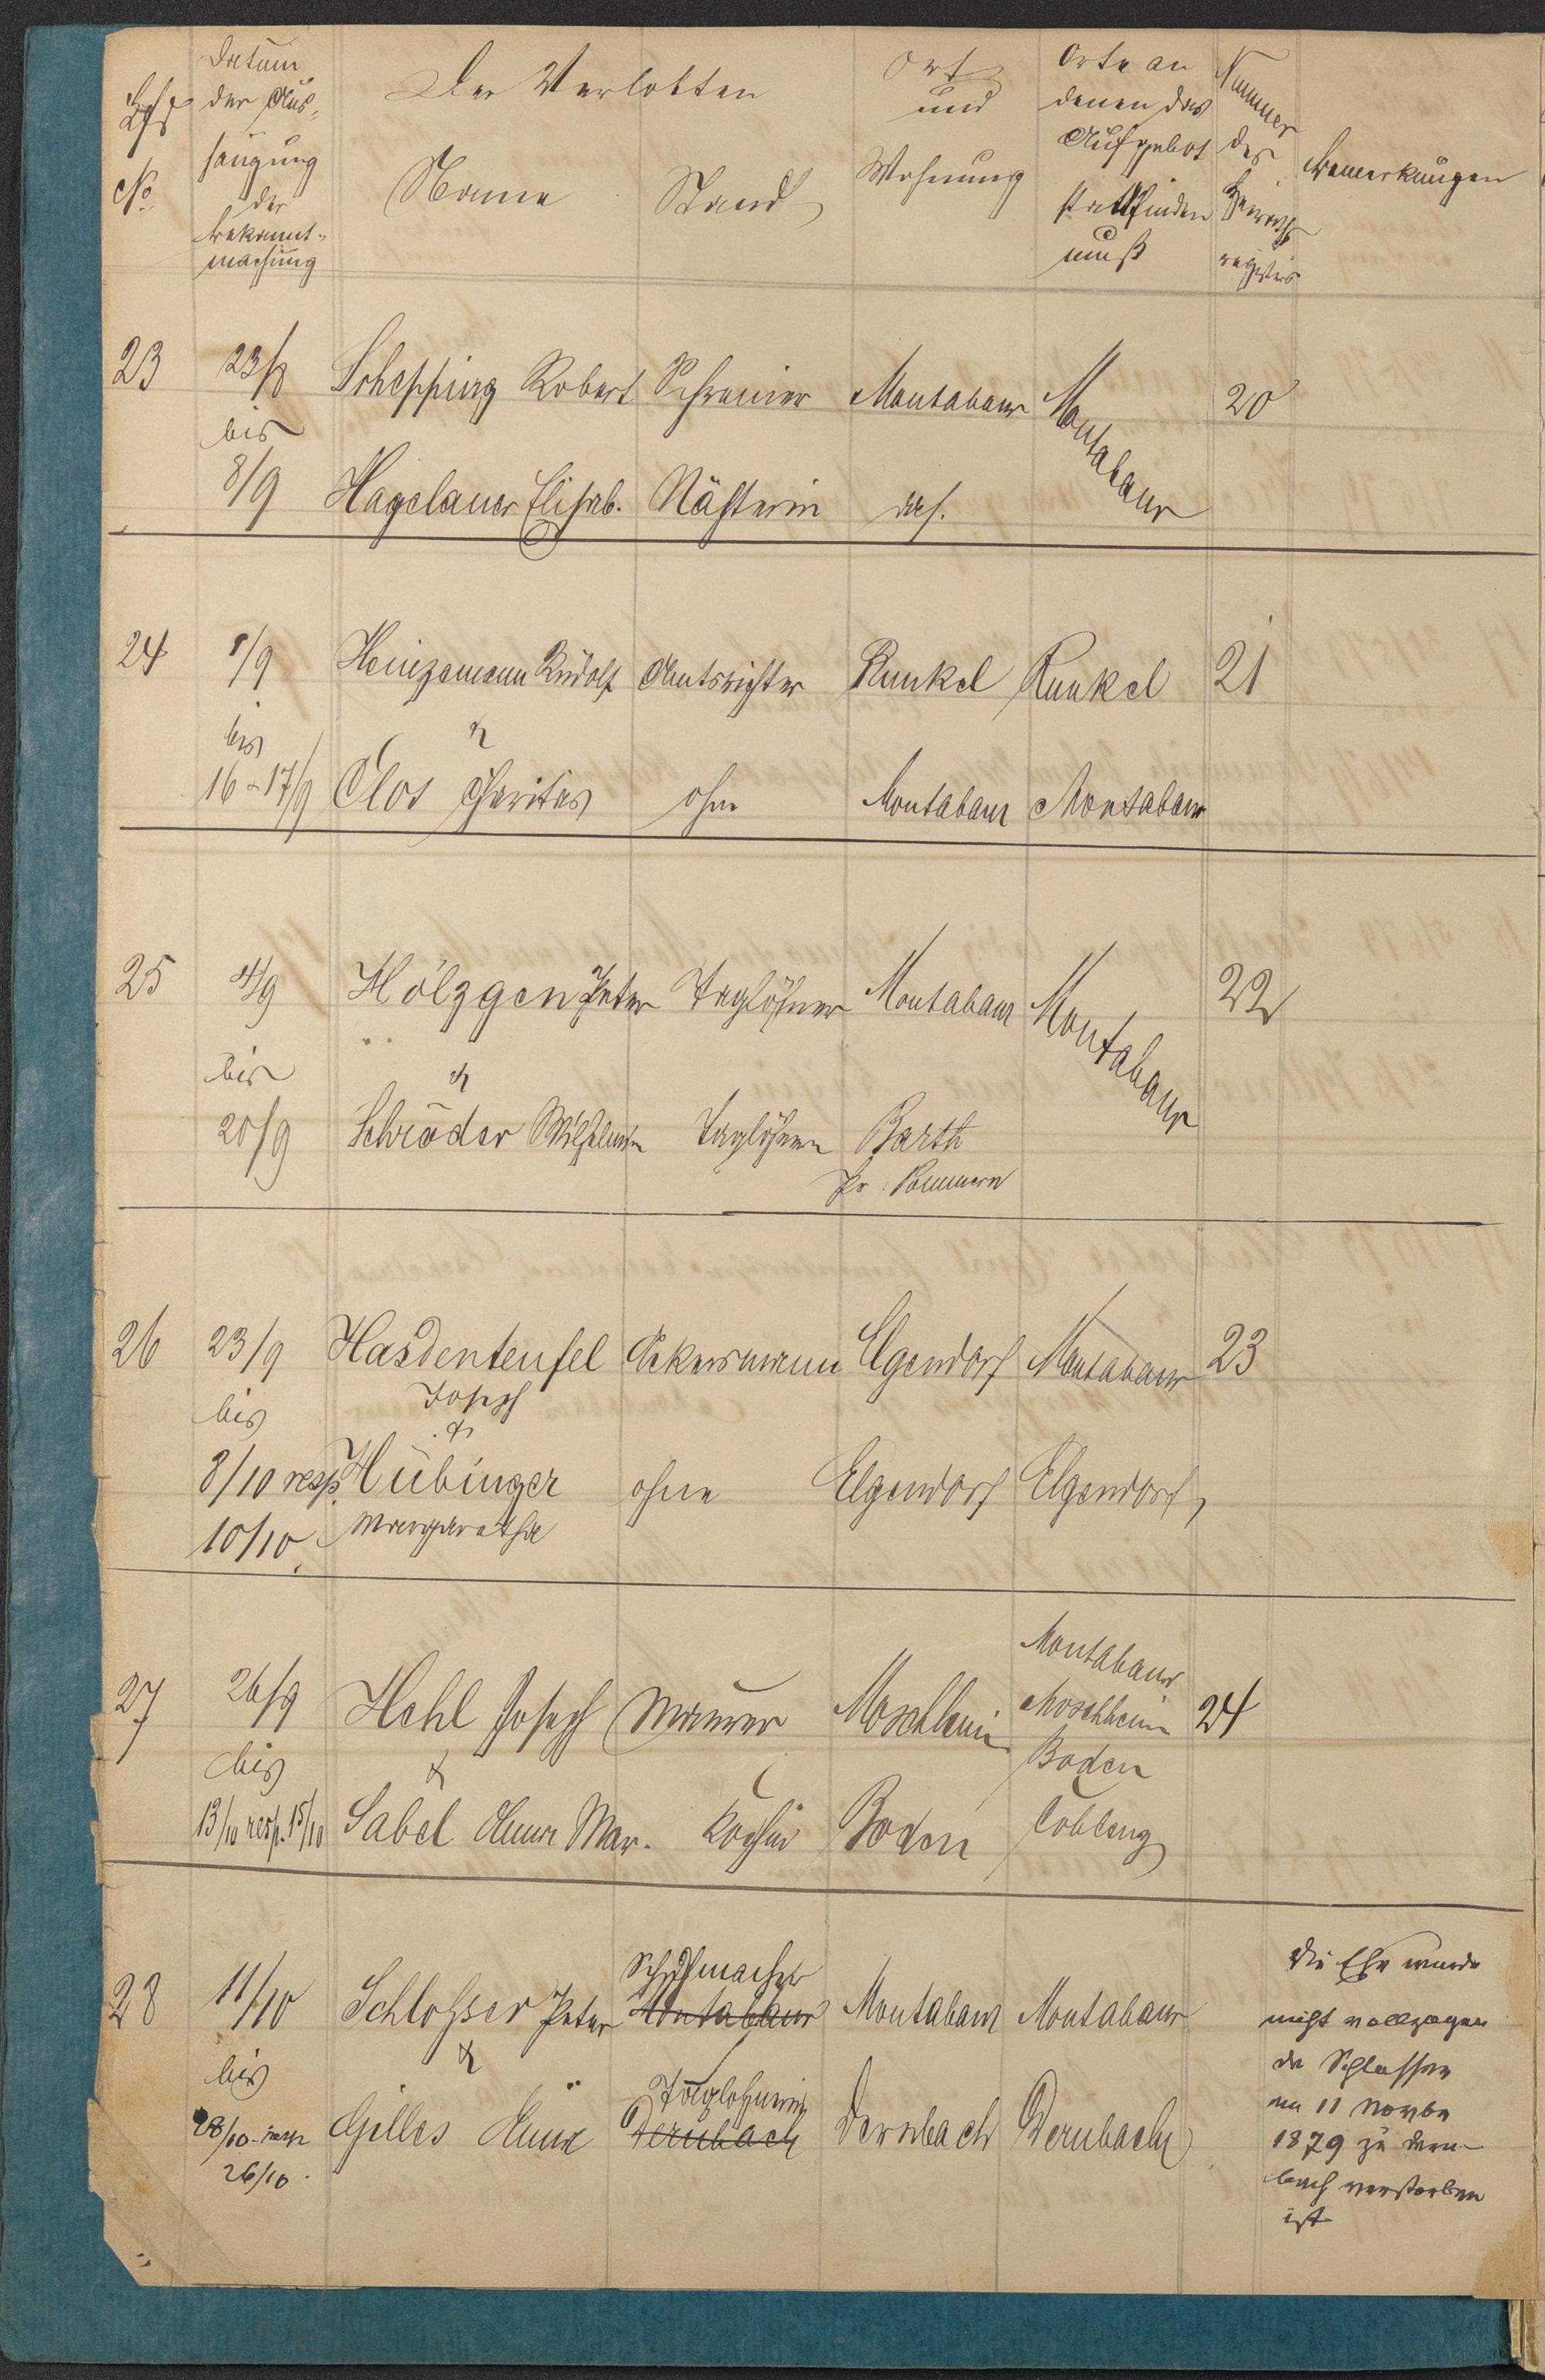 Lfd
No.
Datum
der Aus-
hängung
der
Bekannt-
machung
Der Verlobten
Name
Stand
Ort
und
Wohnung
Orte an
denen das
Aufgebot
stattfinden
muß
Nummer
des
Heiraths
registers
Bemerkungen
23 23/8 Schepping Robert Schreiner Montabaur Montabaur 20
bis
8/9 Hagelauer Elisab. Nähterin das.
24 1/9 Heinzemann Rudolf Amtsrichter Runkel Runkel 21
bis &
16-17/9 Clos Charitas ohne Montabaur Montabaur
25 4/9 Hölzgen Peter Taglöhner Montabaur Montabaur 22
bis &
20/9 Schröder Wilhelmin Taglöhnern Barth
Pr. Pommern
26 23/9 Hasdenteufel Ackersmann Elgendorf Montabaur 23
bis Joseph
&
8/10 resp. Hübinger ohne Elgendorf Elgendorf
10/10. Margaretha
Montabaur
27 26/9 Hehl Joseph Maurer Moschheim Moschheim 24
bis & Boden
13/10 resp. 15/10 Sabel Anna Mar. Köchin Boden Coblenz
Schuhmacher
28 11/10 Schloßser Peter Montabaur Montabaur Montabaur
bis &
Taglöhnerin
28/10 resp Gilles Anna Dernbach Dernbach Dernbach
26/10.
Die Ehe wurde
nicht vollzogen
da Schlosser
am 11 Novbr
1879 zu Dern-
bach verstorben
ist